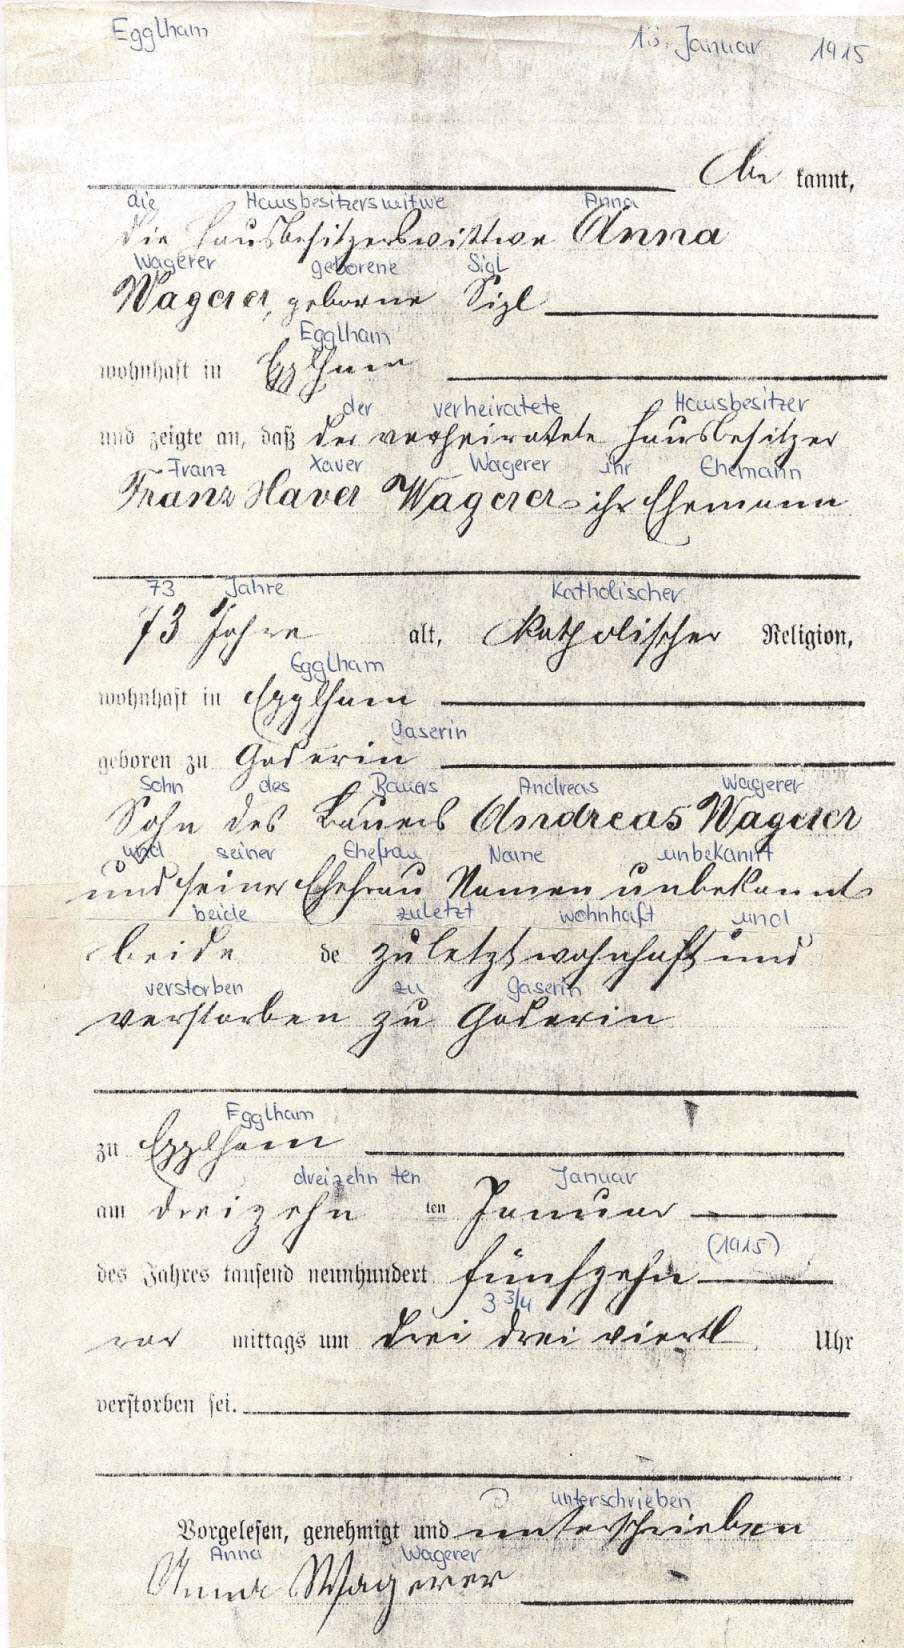 Egglham 13. Januar 1915
be kannt,
die Hausbesitzerswitwe Anna
die Hausbesitzerswittwe Anna
Wagerer geborene Sigl
Wagerer, geborne Sigl
Egglham
wohnhaft in Egglham
der verheiratete Hausbesitzer
und zeigte an, daß der verheiratete Hausbesitzer
Franz Xaver Wagerer ihr Ehemann
Franz Xaver Wagerer ihr Ehemann
73 Jahre katholischer
73 Jahre alt, katholischer Religion,
Egglham
wohnhaft in Egglham
Gaserin
geboren zu Goderin
Sohn des Bauers Andreas Wagerer
Sohn des Bauers Andreas Wagerer
und seiner Ehefrau Name unbekannt
und seiner Ehefrau Namen unbekannt
beide zuletzt wohnhaft und
beide de zuletzt wohnhaft und
verstorben zu Gaserin
verstorben zu Goderin
Egglham
zu Egglham
dreizehn ten Januar
am dreizehn ten Januar
(1915)
des Jahres tausend neunhundert fünfzehn
3 3/4
vor mittags um drei drei viertl Uhr
verstorben sei.
unterschrieben
Vorgelesen, genehmigt und unterschrieben
Anna Wagerer
Anna Wagerer